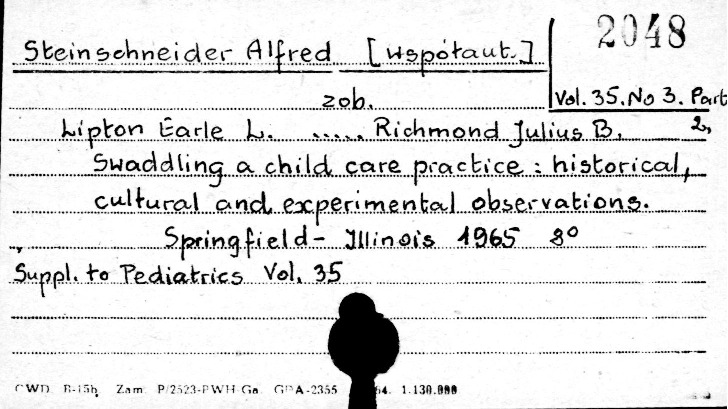 2048
Steinschneider Alfred [współaut.]
zob.
Vol. 35. No 3. Part 2,
Lipton Earle L. ..... Richmond Julius B.
Swaddling a child care practice : historical,
cultural and experimental observations.
Springfield - Illinois 1965 8º
Suppl. to Pediatrics Vol. 35
CWD B-15b Zam. P/2523-PWH-Ga GDA-2355 64. 1.130.000